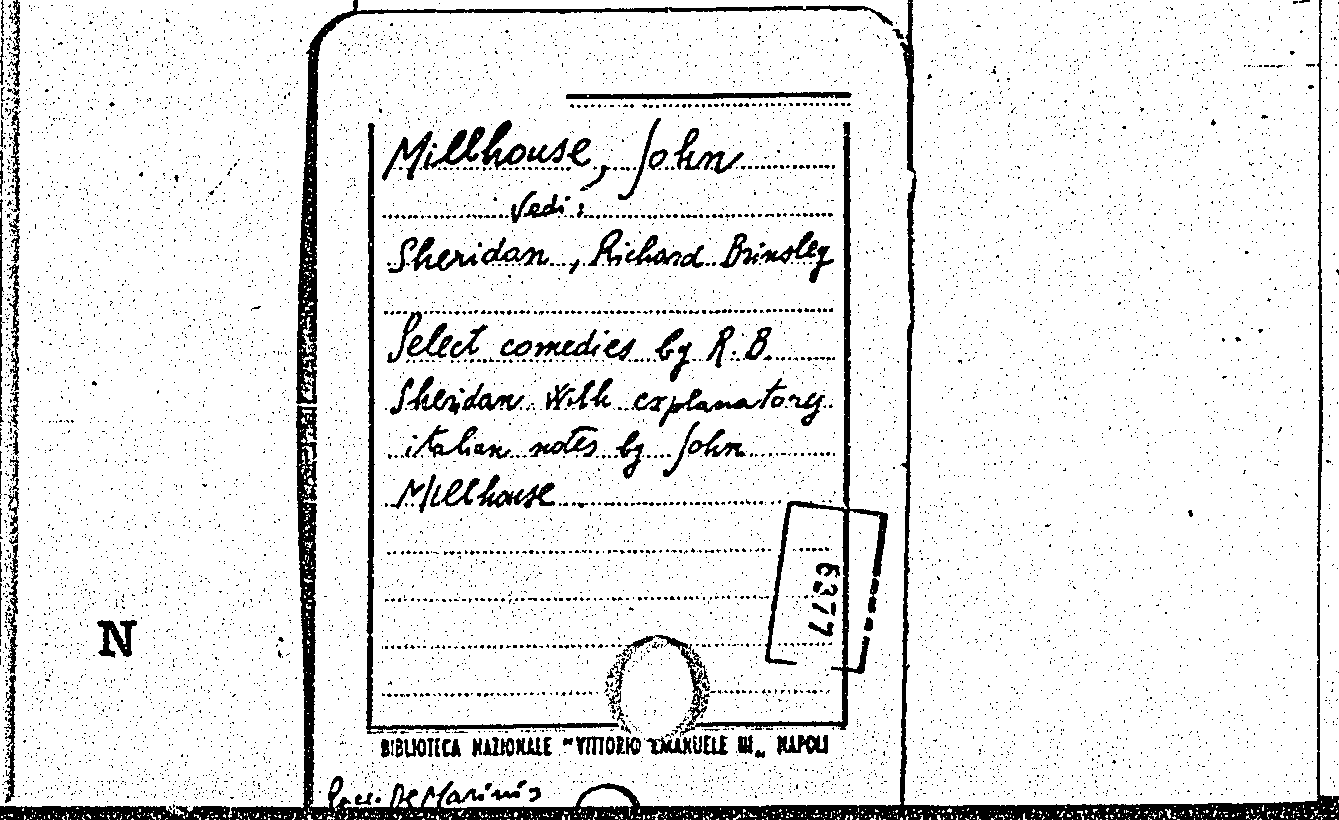 Millhouse, John
Vedi:
Sheridan, Richard Brinsley
Select comedies by R. B.
Sheridan With explanatory
italian notes by John
Millhouse
6377
N
BIBLIOTECA NAZIONALE "VITTORIO EMANUELE III„ NAPOLI
De Marinis